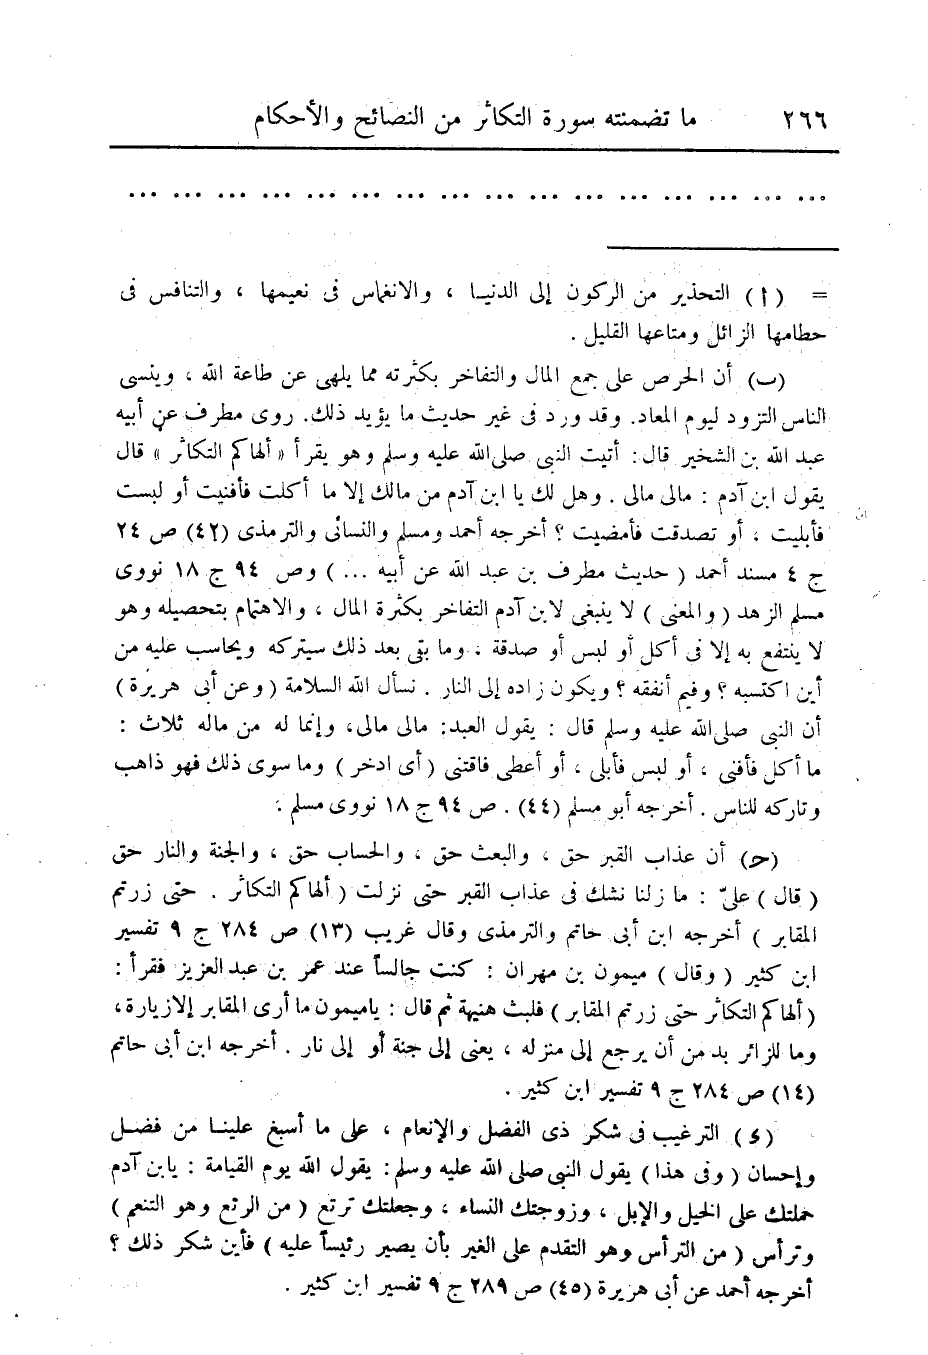 ٢٦٦ ما تضمنته سورة التكاثر من النصائح والأحكام
... ... ... ... ... ... ... ... ... ... ... ... ... ... ... ...
= (ا) التحذير من الركون إلى الدنيا ، والانغماس فى نعيمها ، والتنافس فى
حطامها الزائل ومتاعها القليل .
(ب) أن الحرص على جمع المال والتفاخر بكثرته مما يلهى عن طاعة الله ، وينسى
الناس التزود ليوم المعاد. وقد ورد فى غير حديث ما يؤيد ذلك. روى مطرف عن أبيه
عبد الله بن الشخير قال: أتيت النبى صلى الله عليه وسلم وهو يقرأ « ألهاكم التكاثر » قال
يقول ابن آدم : مالى مالى . وهل لك يا ابن آدم من مالك إلا ما أكلت فأفنيت أو لبست
فأبليت ، أو تصدقت فأمضيت ؟ أخرجه أحمد ومسلم والنسائى والترمذى (٤٢) ص ٢٤
ج ٤ مسند أحمد ( حديث مطرف بن عبد الله عن أبيه ... ) وص ٩٤ ج ١٨ نووى
مسلم الزهد ( والمعنى ) لا ينبغى لابن آدم التفاخر بكثرة المال ، والاهتمام بتحصيله وهو
لا ينتفع به إلا فى أكل أو لبس أو صدقة ، وما بقى بعد ذلك سيتركه ويحاسب عليه من
أين اكتسبه ؟ وفيم أنفقه ؟ ويكون زاده إلى النار . نسأل الله السلامة ( وعن أبى هريرة )
أن النبى صلى الله عليه وسلم قال : يقول العبد: مالى مالى، وإنما له من ماله ثلاث :
ما أكل فأفنى ، أو لبس فأبلى ، أو أعطى فاقتنى ( أى ادخر ) وما سوى ذلك فهو ذاهب
وتاركه للناس . أخرجه أبو مسلم (٤٤) . ص ٩٤ ج ١٨ نووى مسلم .
(ح) أن عذاب القبر حق ، والبعث حق ، والحساب حق ، والجنة والنار حق
( قال ) علىّ : ما زلنا نشك فى عذاب القبر حتى نزلت ( ألهاكم التكاثر . حتى زرتم
المقابر ) أخرجه ابن أبى حاتم والترمذى وقال غريب (١٣) ص ٢٨٤ ج ٩ تفسير
ابن كثير ( وقال ) ميمون بن مهران : كنت جالساً عند عمر بن عبد العزيز فقرأ :
( ألهاكم التكاثر حتى زرتم المقابر ) فلبث هنيهة ثم قال : ياميمون ما أرى المقابر إلا زيارة ،
وما للزائر بد من أن يرجع إلى منزله ، يعنى إلى جنة أو إلى نار . أخرجه ابن أبى حاتم
(١٤) ص ٢٨٤ ج ٩ تفسير ابن كثير .
(د) الترغيب فى شكر ذى الفضل والإنعام ، على ما أسبغ علينا من فضل
وإحسان ( وفى هذا ) يقول النبى صلى الله عليه وسلم : يقول الله يوم القيامة : يابن آدم
حملتك على الخيل والإبل ، وزوجتك النساء ، وجعلتك ترتع ( من الرتع وهو التنعم )
وترأس ( من الترأس وهو التقدم على الغير بأن يصير رئيساً عليه ) فأين شكر ذلك ؟
أخرجه أحمد عن أبى هريرة (٤٥) ص ٢٨٩ ج ٩ تفسير ابن كثير .